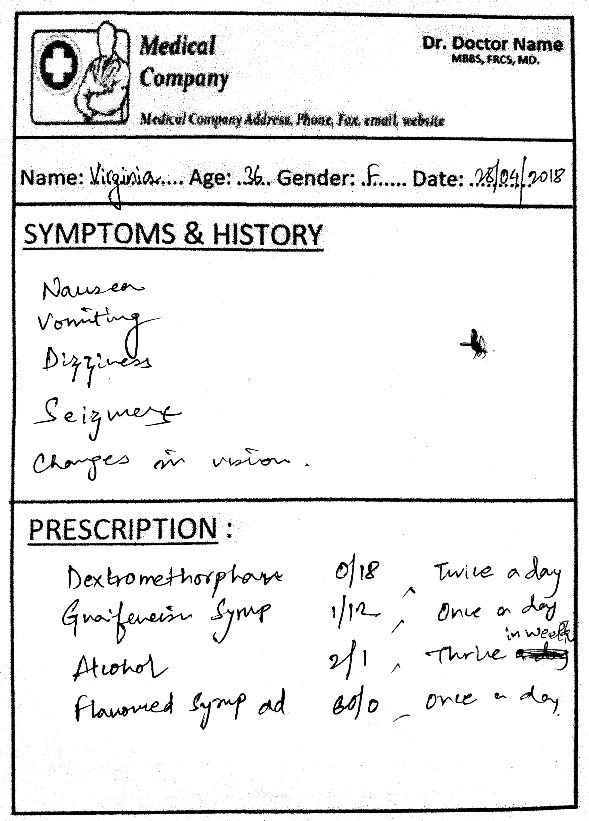 Medical
Company
Dr. Doctor Name
MBBS, FRCS, MD.
Medical Company Address, Phone, Fax, email, website
Name: Virginia..... Age: .36.. Gender: .F...... Date: .28/04/2018
SYMPTOMS & HISTORY
Nausea
Vomiting
Dizziness
Seizures
Changes in vision.
PRESCRIPTION :
Dextromethorphane 0/18, Twice a day
Guaifenesin Syrup 1/12, Once a day
in week
Alcohol 2/1, Thrice
Flavoured Syrup ad 60/0, Once a day